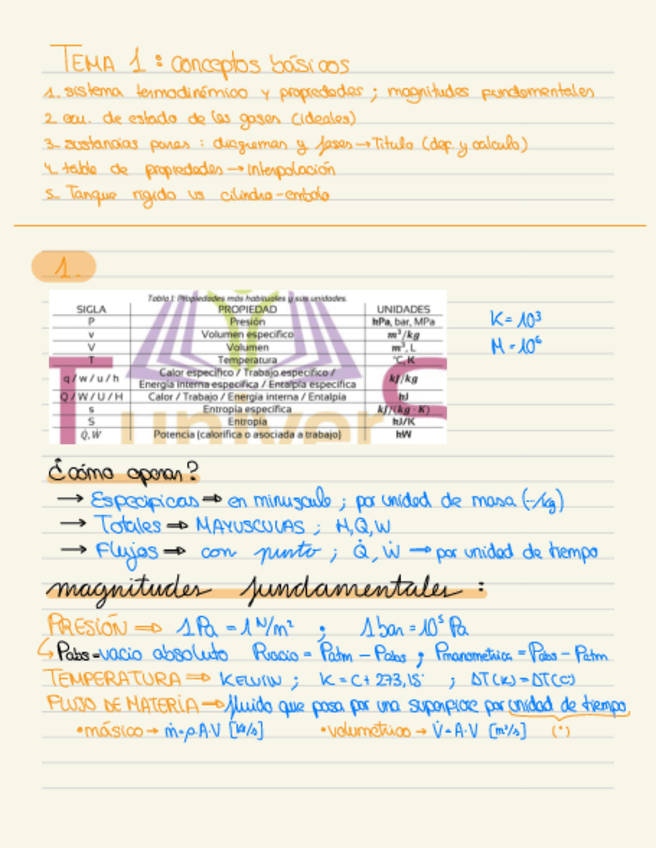 TEMA 1: conceptos básicos
1. sistema termodinámico y propiedades; magnitudes fundamentales
2. ecu. de estado de los gases (ideales)
3. sustancias puras: diagramas y fases → Titulo (def. y calculo)
4. tabla de propiedades → interpolación
5. Tanque rigido vs cilindro-embolo
1.
Tabla 1: Propiedades más habituales y sus unidades.
SIGLA PROPIEDAD UNIDADES
P Presión hPa, bar, MPa
v Volumen específico m³/kg
V Volumen m³, L
T Temperatura °C, K
q / w / u / h Calor específico / Trabajo específico / Energía interna específica / Entalpía específica kJ/kg
Q / W / U / H Calor / Trabajo / Energía interna / Entalpía hJ
s Entropía específica kJ/(kg · K)
S Entropía hJ/K
Q̇, Ẇ Potencia (calorífica o asociada a trabajo) hW
K = 10³
M = 10⁶
¿cómo operar?
→ Específicas ⇒ en minuscula; por unidad de masa (../kg)
→ Totales ⇒ MAYUSCULAS; H, Q, W
→ Flujos ⇒ con punto; Q̇, Ẇ → por unidad de tiempo
magnitudes fundamentales:
PRESIÓN ⇒ 1 Pa = 1 N/m² ; 1 bar = 10⁵ Pa
↳ Pabs = vacio absoluto Pvacio = Patm - Pabs ; Pmanometrica = Pabs - Patm
TEMPERATURA ⇒ KELVIN ; K = C + 273,15 ; ΔT(K) = ΔT(C)
FLUJO DE MATERIA → fluido que pasa por una superficie por unidad de tiempo
• másico → ṁ = ρ·A·V [kg/s] • volumétrico → V̇ = A·V [m³/s] (·)